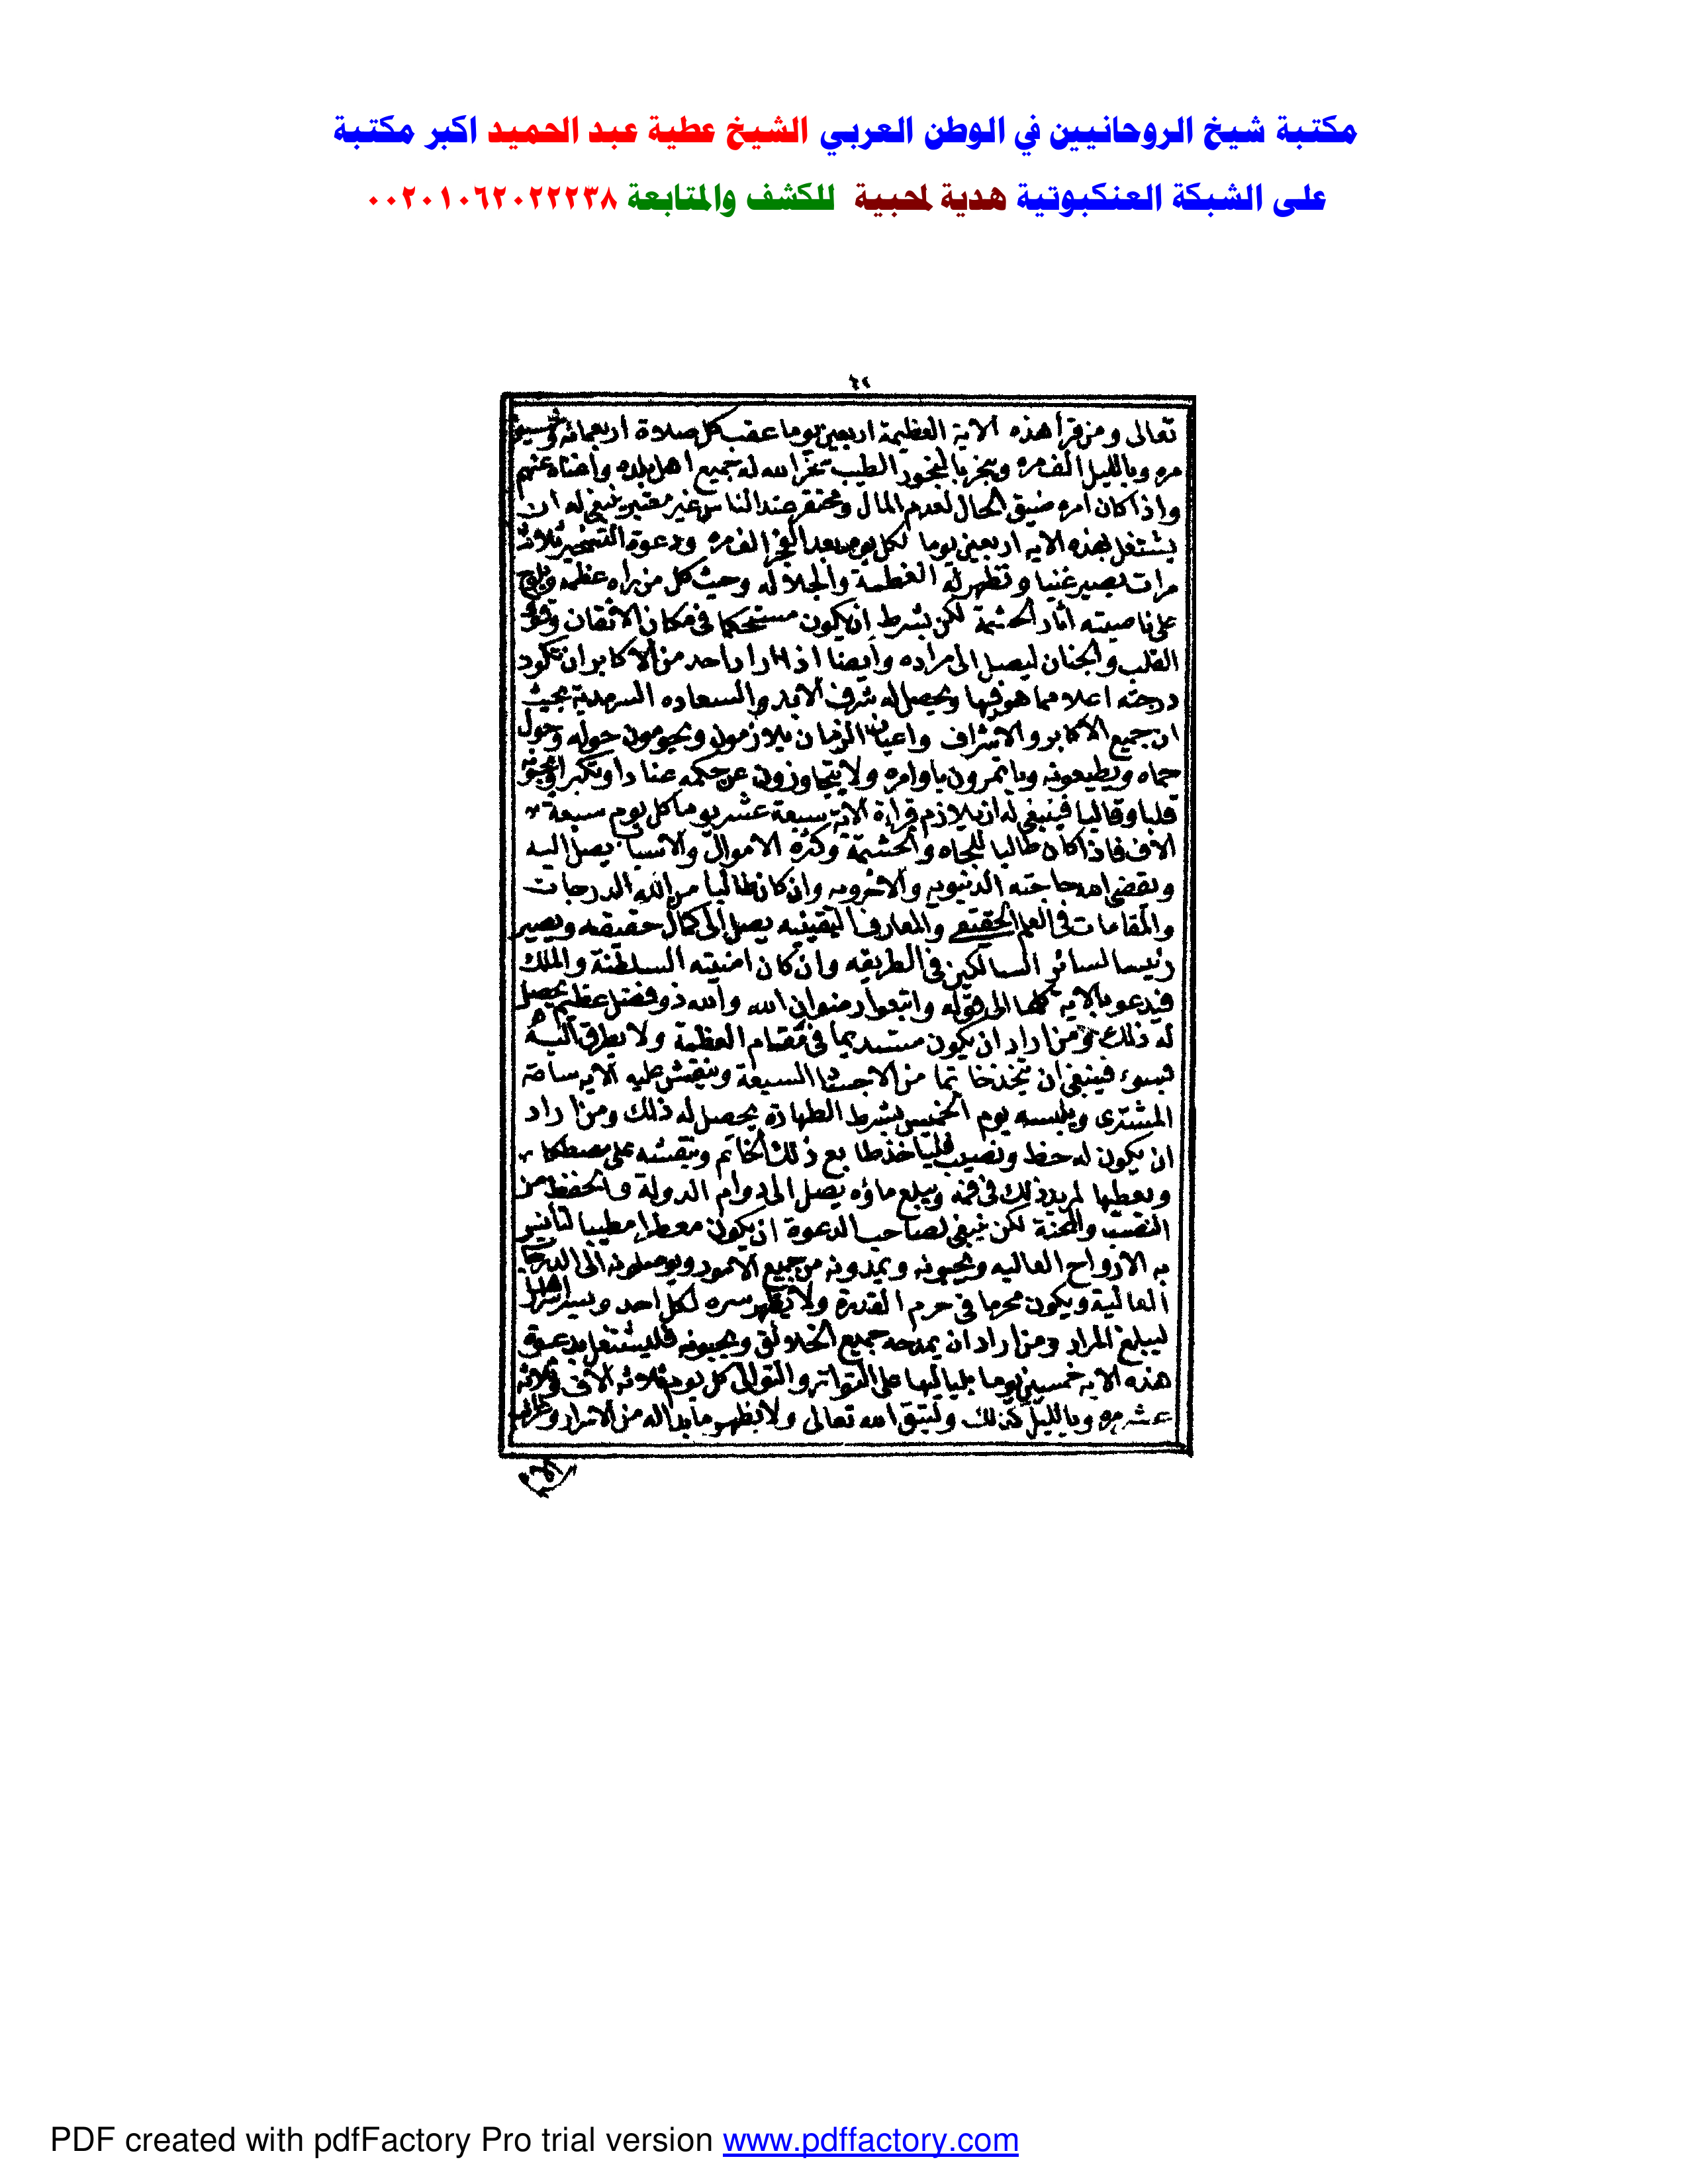 مكتبة شيخ الروحانيين في الوطن العربي الشيخ عطية عبد الحميد اكبر مكتبة
على الشبكة العنكبوتية هدية لمحبية للكشف والمتابعة ٠٠٢٠١٠٦٢٠٢٢٢٣٨
تعالى ومن قرأ هذه الاية العظيمة اربعين يوما عقب كل صلاة أربعمائة وخمسين
مره وبالليل الف مره ويبخر بالبخور الطيب سخر الله له جميع اهل بلده وأغناه عنهم
واذا كان امره ضيق الحال لعدم المال ومحتقر عند الناس غير معتبر ينبغى له ان
يشتغل بهذه الايه اربعين يوما لكل يوم بعد الفجر الف مره ودعوة التسخير ثلاث
مرات يصير غنيا وتظهر له العظمة والجلاله وحيث كل من يراه عظمه ويلوح
على ناصيته اثار الحشمة لكن بشرط ان يكون مستحكما فى مكان الاتقان
القلب والجنان ليصل الى مراده وأيضا اذا اراد احد من الاكابر ان تكون
درجته اعلا مما هو فيها ويحصل له شرف الابد والسعاده السرمدية بحيث
ان جميع الاكابر والاشراف واعيان الزمان يلازمون ويحومون حوله وحول
حماه ويطيعونه وياتمرون باوامره ولا يتجاوزون عن حكمه عنادا وتكبرا ويحبونه
قلبا وقالبا فينبغى له ان يلازم قراءة الاية سبعة عشر يوما كل يوم سبعة
الاف فاذا كان طالبا للجاه والحشمة وكثرة الاموال والاسباب يصل اليه
ويقضى الله حاجته الدنيويه والاخرويه وان كان طالبا من الله الدرجات
والمقامات فى العلم الحقيقى والمعارف اليقينيه يصل الى كمال حقيقته ويصير
رئيسا لسائر السالكين فى الطريقه وان كان امنيته السلطنة والملك
فيدعو بالايه كلها الى قوله واتبعوا رضوان الله والله ذو فضل عظيم يحصل
له ذلك ومن اراد ان يكون مستديما فى مقام العظمة ولا يطرق اليه
بسوء فينبغى ان يتخذ خاتما من الاجساد السبعة وينقش عليه الايه ساعة
المشترى ويلبسه يوم الخميس بشرط الطهارة يحصل له ذلك ومن اراد
ان يكون له حظ ونصيب فلياخذ طابع ذلك الخاتم وينقشه على مصطكا
ويعطيها لمريد ذلك فى فمه ويبلع ماؤه يصل الى دوام الدولة والحفظ من
والمحنة لكن ينبغى لصاحب الدعوة ان يكون معطرا مطيبا لتأنس
به الارواح العاليه ويحبونه ويمدونه من جميع الامور ويوصلونه الى الدرجات
العالية ويكون محرما فى حرم القدرة ولا يظهر سره لكل احد
ليبلغ المراد ومن اراد ان يمدحه جميع الخلائق ويحبونه فليشتغل بدعوة
هذه الايه خمسين يوما بلياليها على التواتر والتوالى كل يوم ثلاثه الاف وثلاثه
عشر مره وبالليل كذلك وليتق الله تعالى ولا يظهر ما بدا له من الاسرار
PDF created with pdfFactory Pro trial version www.pdffactory.com